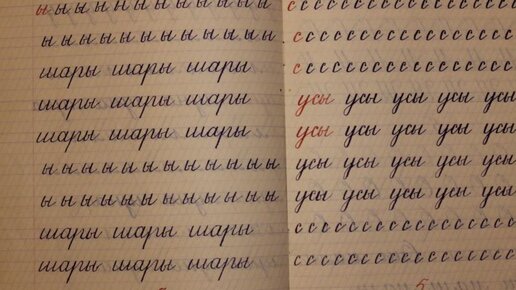 ы ы ы ы ы ы ы ы ы ы ы ы ы
ы ы ы ы ы ы ы ы ы ы ы ы ы
шары шары шары
шары шары шары
шары шары шары
ы ы ы ы ы ы ы ы ы ы ы ы ы
ы ы ы ы ы ы ы ы ы ы ы ы ы
шары шары шары
шары шары шары
с с с с с с с с с с с с с с с с с
с с с с с с с с с с с с с с с с с
с с с с с с с с с с с с с с с с с
усы усы усы усы усы
усы усы усы усы усы
усы усы усы усы усы
усы усы усы усы усы
с с с с с с с с с с с с с с с с с
с с с с с с с с с с с с с с с с с
5